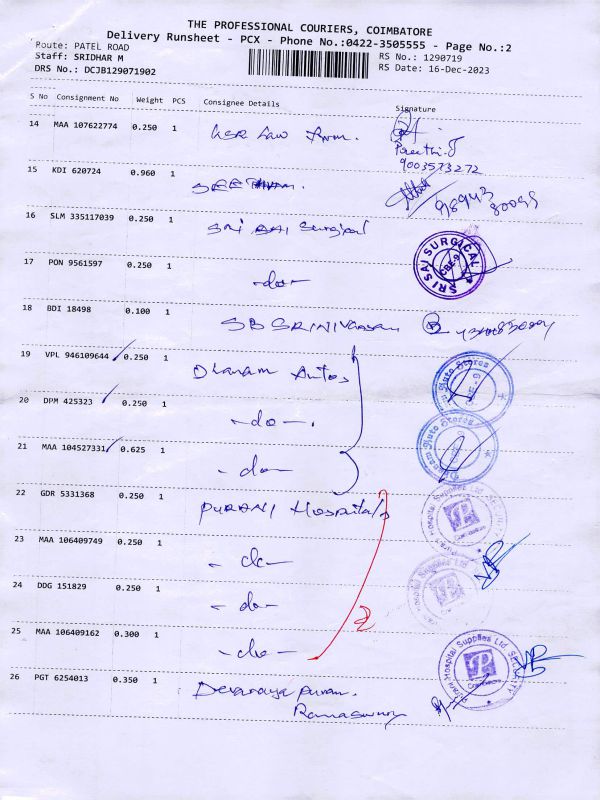 THE PROFESSIONAL COURIERS, COIMBATORE
Delivery Runsheet - PCX - Phone No.:0422-3505555 - Page No.:2
Route: PATEL ROAD
Staff: SRIDHAR M
DRS No.: DCJB129071902
RS No.: 1290719
RS Date: 16-Dec-2023
S No Consignment No Weight PCS Consignee Details Signature
14 MAA 107622774 0.250 1
Preethi.J
9003573272
15 KDI 620724 0.960 1
16 SLM 335117039 0.250 1 Sri Sai Surgical
SRI SAI SURGICAL
CBE-9
17 PON 9561597 0.250 1 -do-
18 BDI 18498 0.100 1 SB SRINIVASAN
19 VPL 946109644 0.250 1 Dhanam Autos
Dhanam Auto Stores
20 DPM 425323 0.250 1 -do-
Dhanam Auto Stores
21 MAA 104527331 0.625 1 -do-
22 GDR 5331368 0.250 1 PURANI Hospitals
23 MAA 106409749 0.250 1 -do-
24 DDG 151829 0.250 1 -do-
25 MAA 106409162 0.300 1 -do-
Purani Hospital Supplies Ltd. SECURITY
26 PGT 6254013 0.350 1 Devarayapuram
Ramaswamy